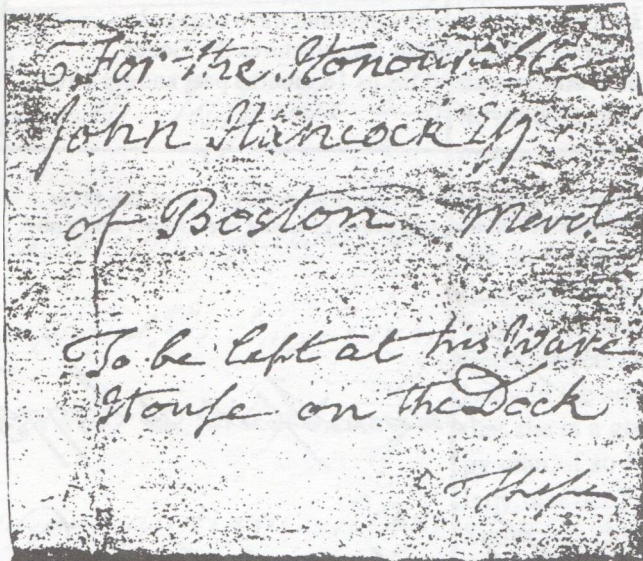 For the Honourable
John Hancock Esqr
of Boston Mercht
To be left at his Ware
House on the Dock